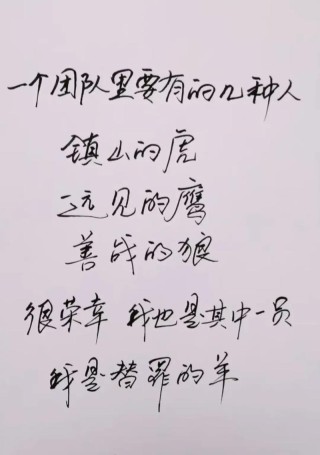 一个团队里要有的几种人
镇山的虎
远见的鹰
善战的狼
很荣幸 我也是其中一员
我是替罪的羊